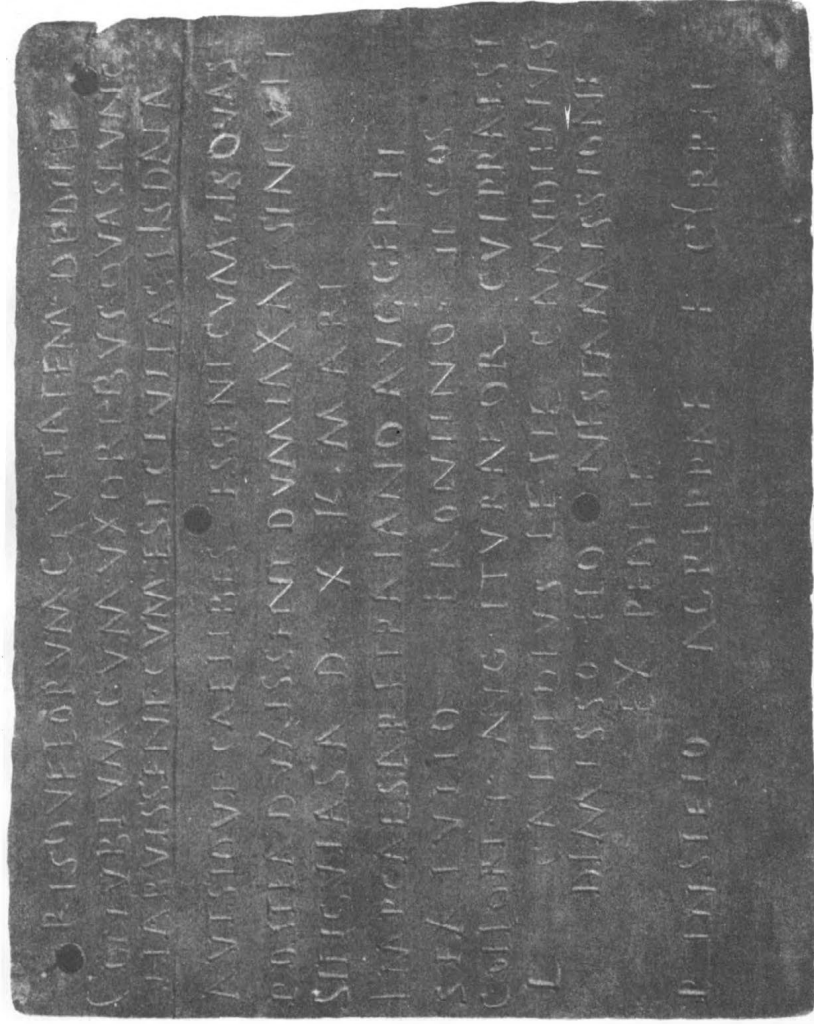 RISQVE EORVM CIVITATEM DEDIT ET
CONVBIVM CVM VXORIBVS QVAS TVNC
HABVISSENT CVM EST CIVITAS IIS DATA
AVT SIQVI CAELIBES ESSENT CVM IIS QVAS
POSTEA DVXISSENT DVMTAXAT SINGVLI
SINGVLAS A D X K MART
IMP CAESARE TRAIANO AVG GER II
SEX IVLIO FRONTINO II COS
COHORT I AVG ITVRAEOR CVI PRAEST
L F STE CAMIDIENVS
DIMISSO HO NESTA MISSIONE
EX PEDITE
P INSTEIO AGRIPPAE F